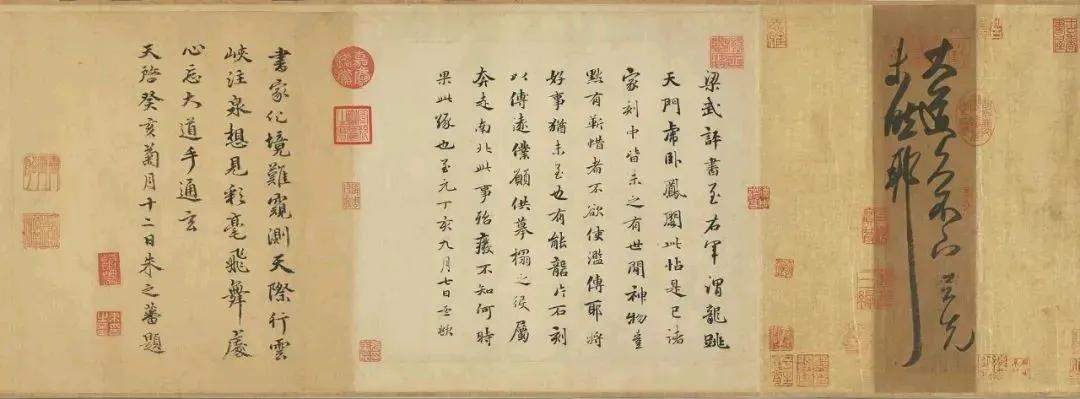 大道久不下与先
未然耶
梁武評書至右軍謂龍跳
天門虎卧鳳闕此帖是已諸
家刻中皆未之有世間神物豈
黙有靳惜者不欲使濫傳耶將
好事猶未至也有能龍片石刻
以傳遠僕願供摹搨之役屬
奔走南北此事殆癈不知何時
果此緣也至元丁亥九月七日孟頫
書家化境難窺測天際行雲
峽注泉想見彩毫飛舞處
心忘大道手通玄
天啓癸亥菊月十二日朱之蕃題